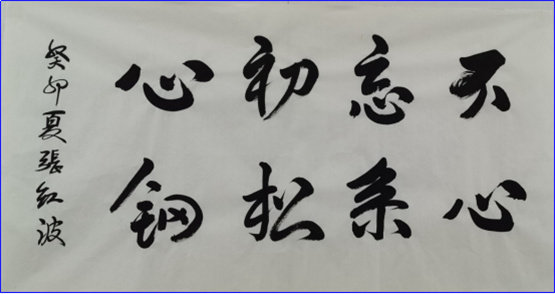 不心
忘系
初松
心钢
癸卯夏張红波